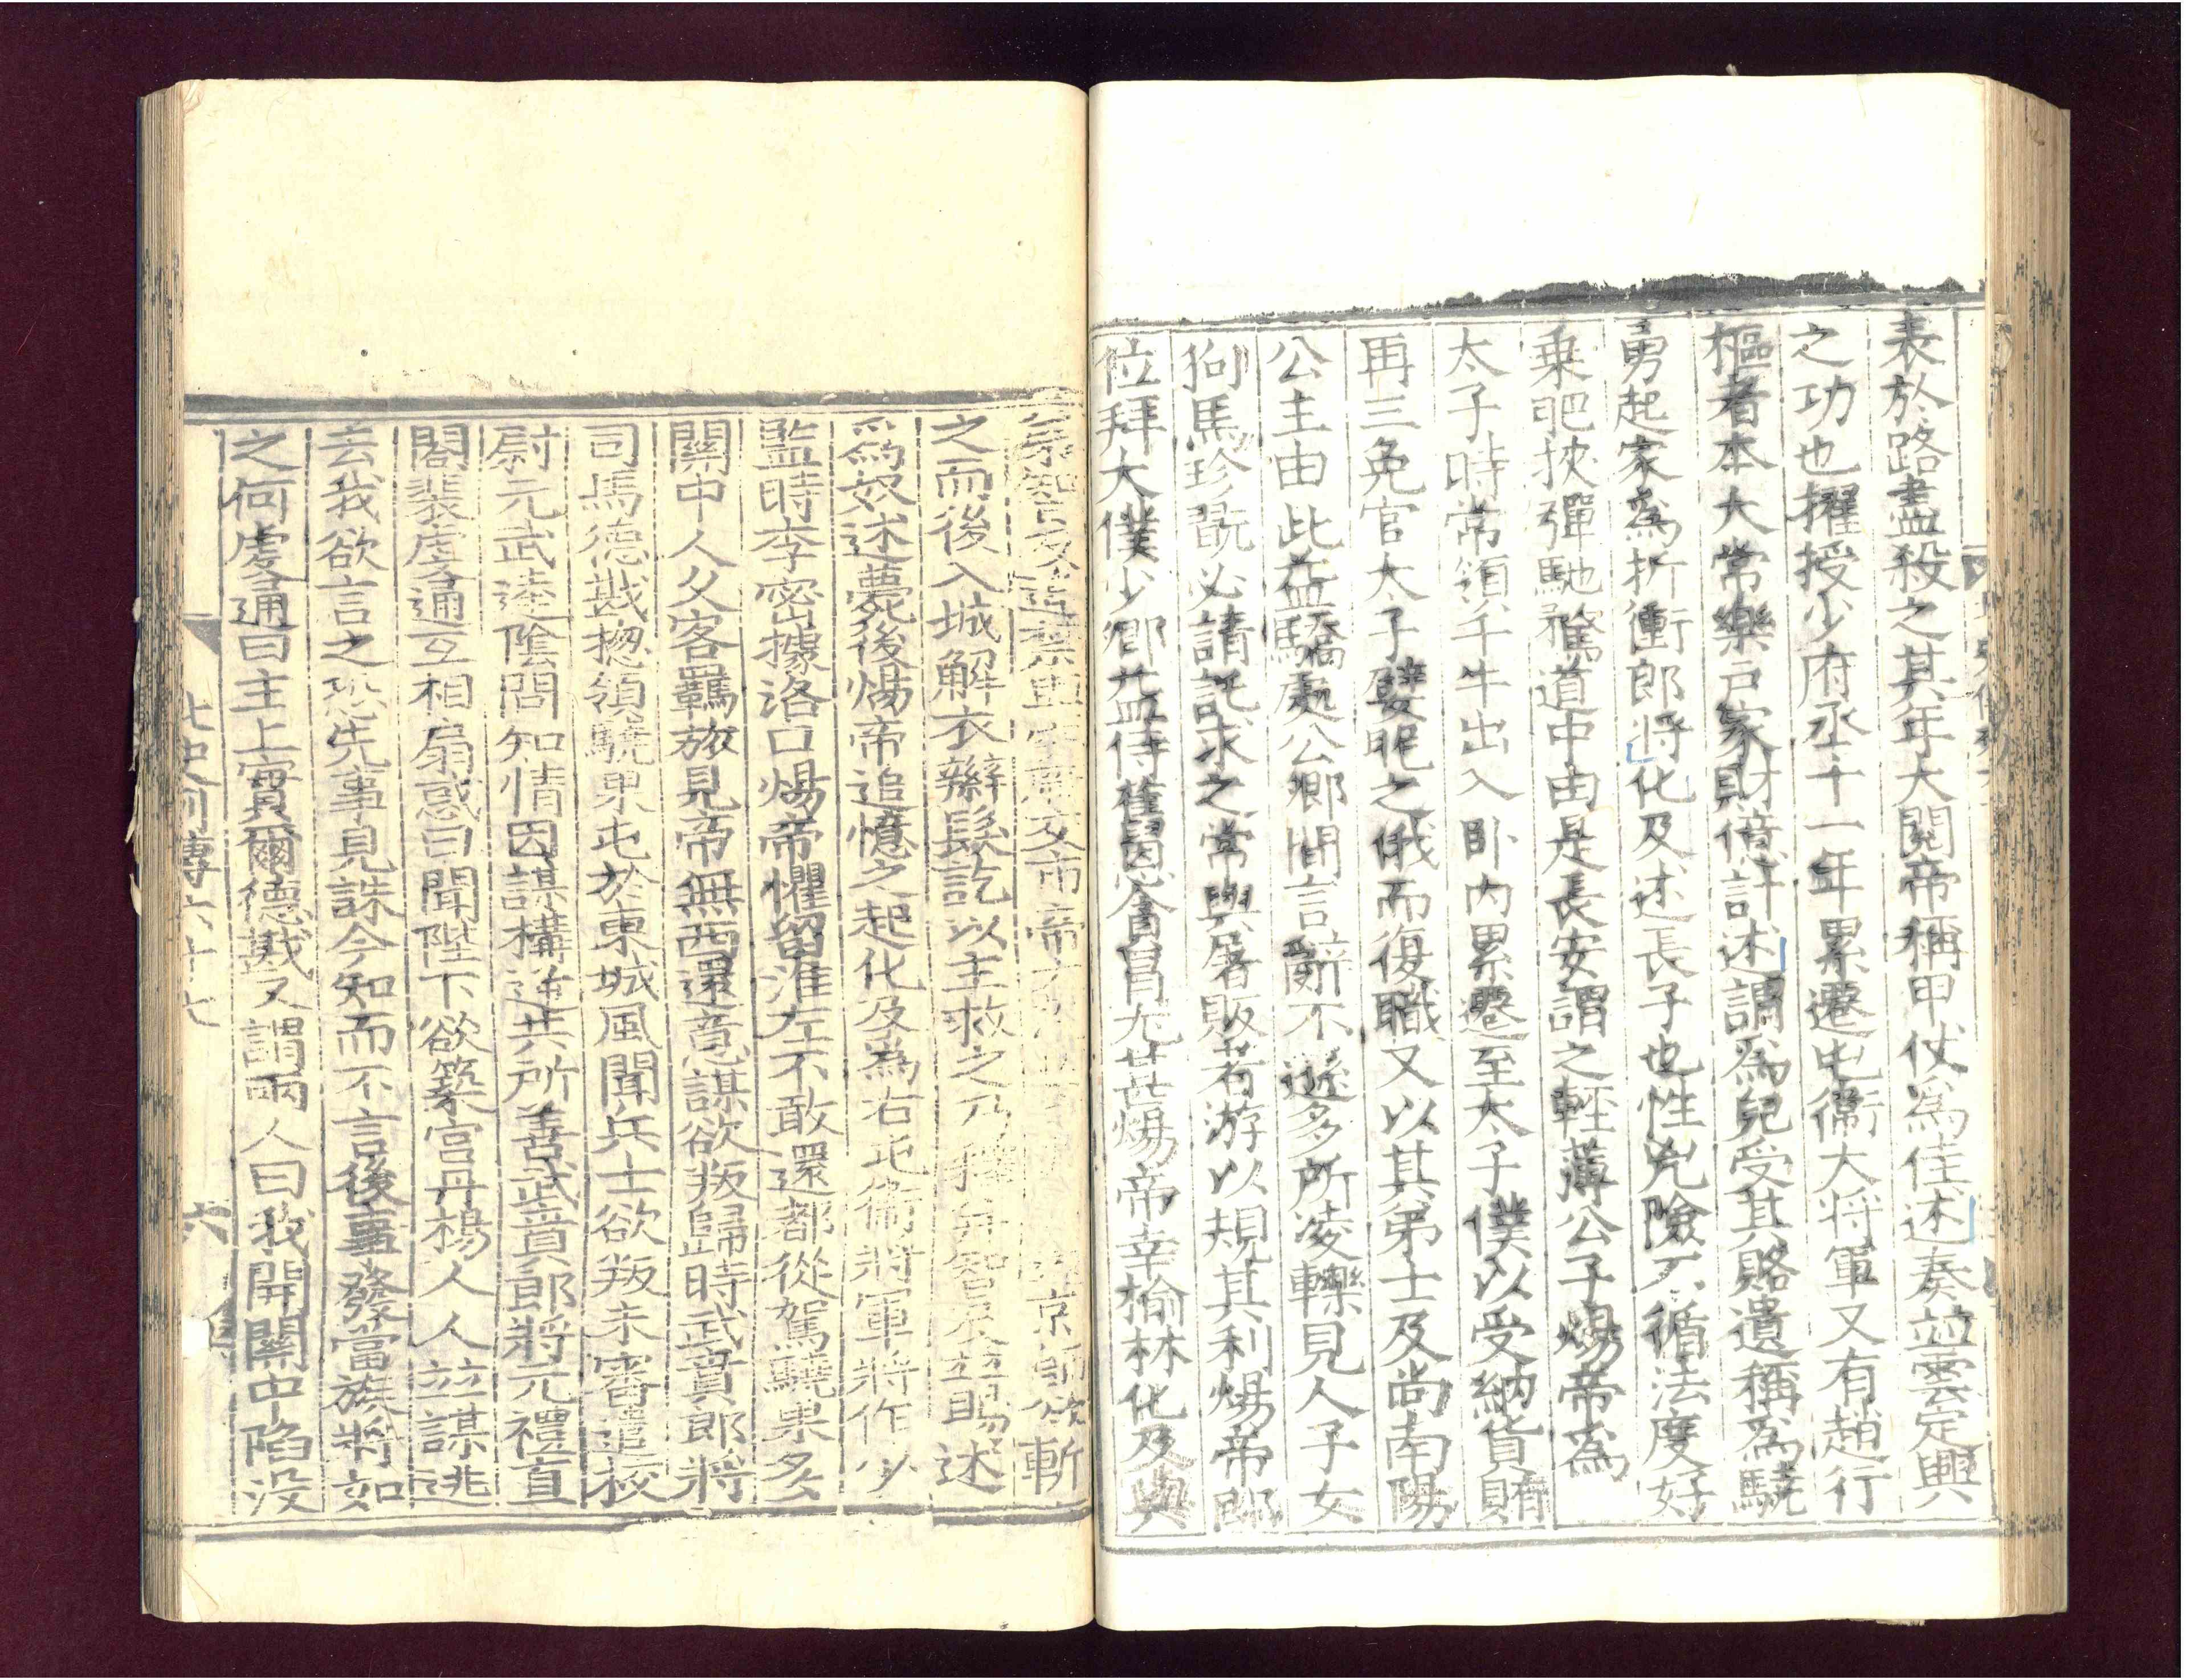 表於路盡殺之其年大閱帝稱甲仗爲佳述奏並雲定興
之功也擢授少府丞十一年累遷屯衞大將軍又有趙行
樞者本大常樂戶家財億計述謂爲兒受其賂遺稱爲驍
勇起家爲折衝郎將化及述長子也性兇險不循法度好
乗肥挾彈馳騖道中由是長安謂之輕薄公子煬帝爲
太子時常領千牛出入卧内累遷至太子僕以受納貨賄
再三免官太子嬖昵之俄而復職又以其弟士及尚南陽
公主由此益驕處公卿間言辭不遜多所凌轢見人子女
狗馬珍翫必請託求之常與屠販者游以規其利煬帝郎
位拜大僕少卿益恃舊恩貪冒尤甚煬帝幸榆林化及與
弟智及違禁與 交市帝 京師欲斬
之而後入城解衣辮髮訖以主救之乃釋并智及並賜述
爲奴述薨後煬帝追憶之起化及爲右屯衞將軍將作少
監時李密據洛口煬帝懼留淮左不敢還都從駕驍果多
關中人久客羈旅見帝無西還意謀欲叛歸時武賁郎將
司馬德戡揔領驍果屯於東城風聞兵士欲叛未審遣校
尉元武逹陰問知情因謀構逆共所善武賁郎將元禮直
閤裴虔通互相扇惑曰聞陛下欲築宫丹楊人人並謀逃
去我欲言之恐先事見誅今知而不言後事發當族將如
之何虔通曰主上實爾德戡又謂兩人曰我聞關中陷没
北史列傳六十七 六